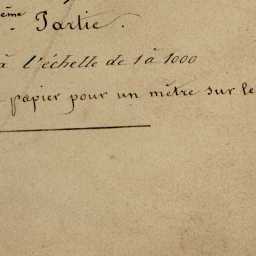 ème Partie.
à l'échelle de 1 à 1000
papier pour un mètre sur le